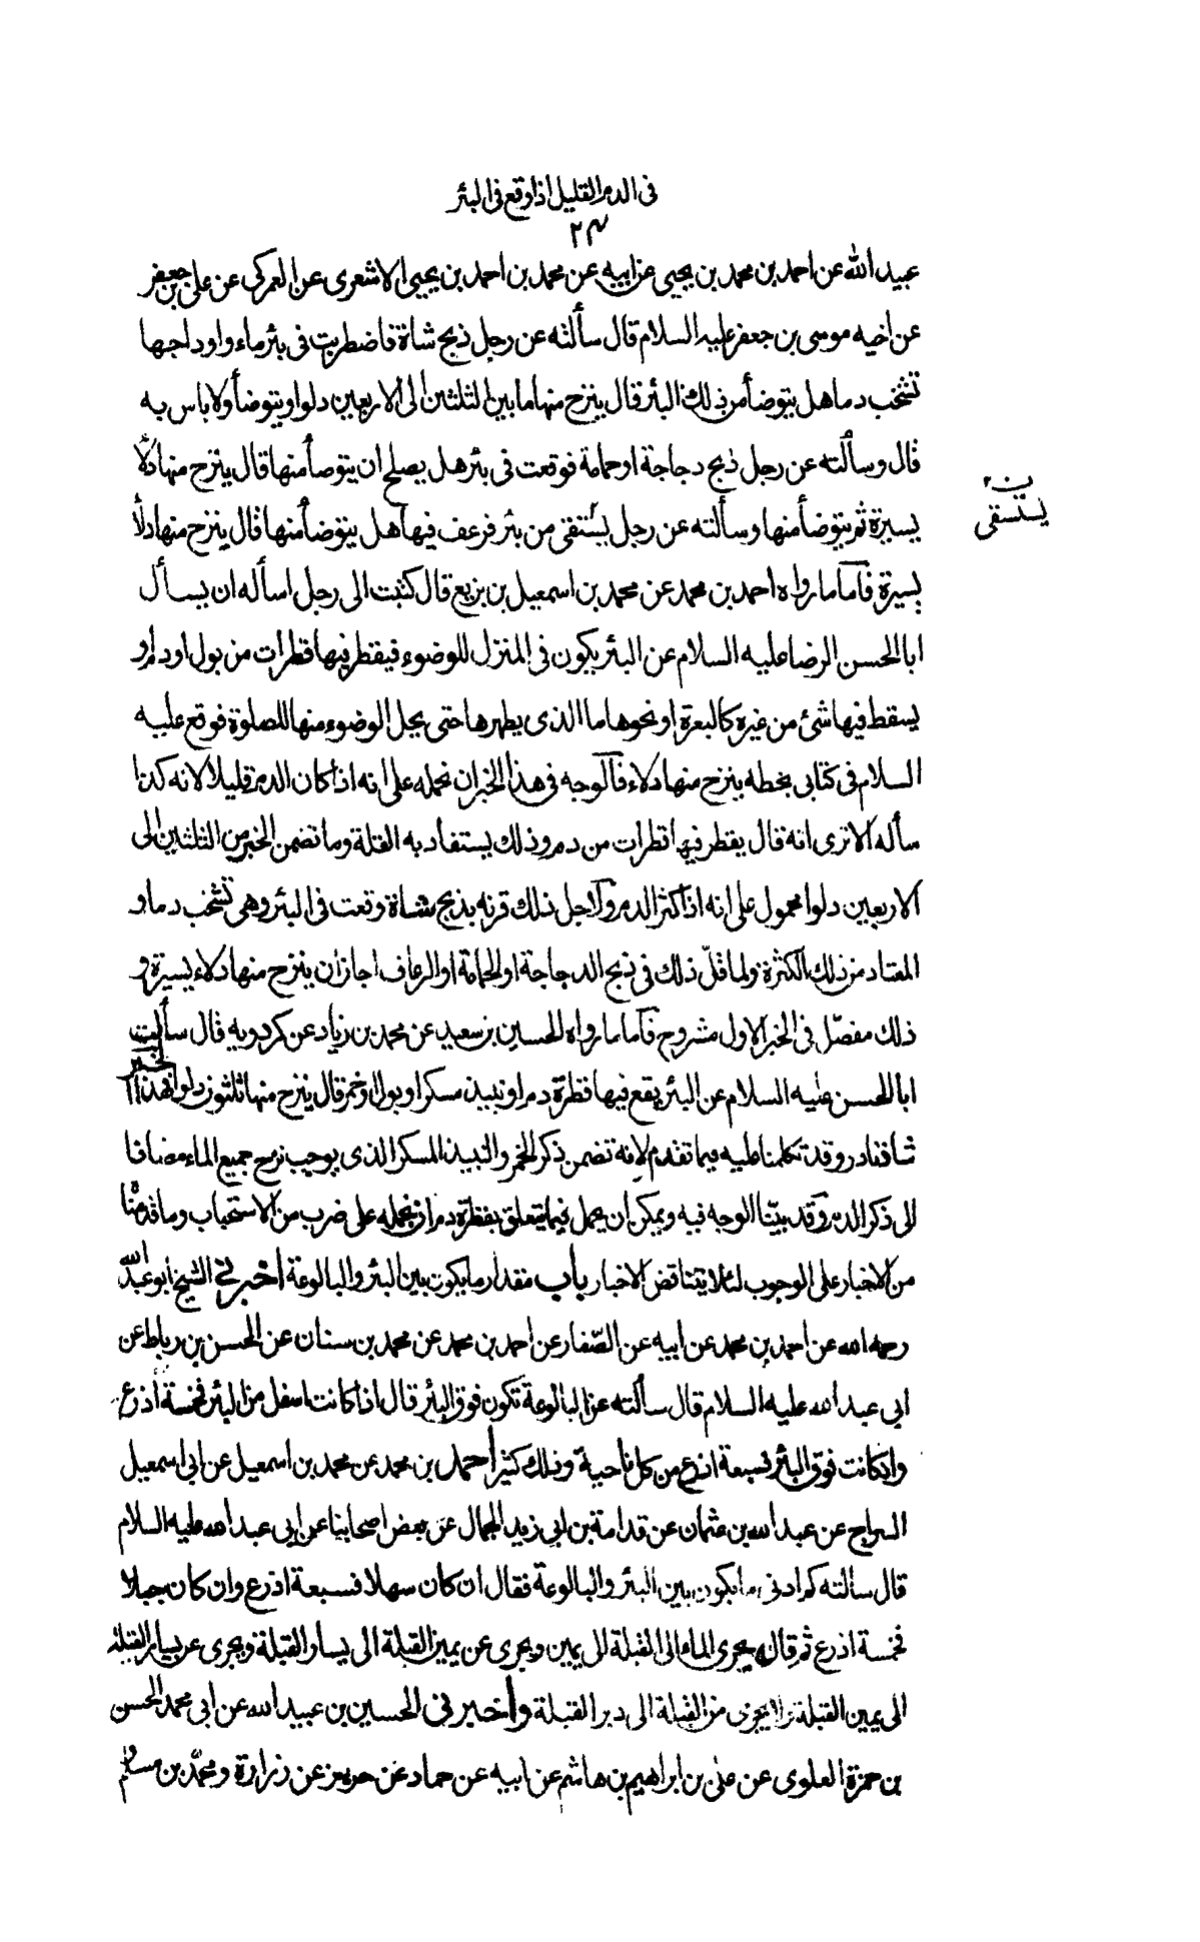 فى الدم القليل اذا وقع فى البئر
٢٣
عبيد الله عن احمد بن محمد بن يحيى عن ابيه عن محمد بن احمد بن يحيى الاشعرى عن العمركى عن على بن جعفر
عن اخيه موسى بن جعفر عليه السلام قال سألته عن رجل ذبح شاة فاضطربت فى بئر ماء واوداجها
تشخب دما هل يتوضأ من ذلك البئر قال ينزح منها ما بين الثلثين الى الاربعين دلوا ويتوضأ ولا باس به
قال وسألته عن رجل ذبح دجاجة او حمامة فوقعت فى بئر هل يصلح ان يتوضأ منها قال ينزح منها دلاء
يسيرة ثم يتوضأ منها وسألته عن رجل يستقى من بئر فرعف فيها هل يتوضأ منها قال ينزح منها دلاء
يستسقى
يسيرة فأما ما رواه احمد بن محمد عن محمد بن اسمعيل بن بزيع قال كتبت الى رجل اسأله ان يسأل
ابا الحسن الرضا عليه السلام عن البئر يكون فى المنزل للوضوء فيقطر فيها قطرات من بول او دم او
يسقط فيها شئ من غيره كالبعرة او نحوها ما الذى يطهرها حتى يحل الوضوء منها للصلوة فوقع عليه
السلام فى كتابى بخطه ينزح منها دلاء فالوجه فى هذا الخبر ان نحمله على انه اذا كان الدم قليلا لانه كذا
سأله الا ترى انه قال يقطر فيها قطرات من دم وذلك يستفاد به القلة وما تضمن الخبر من الثلثين الى
الاربعين دلوا محمول على انه اذا كثر الدم ولاجل ذلك قرنه بذبح شاة وقعت فى البئر وهى تشخب دما و
المعتاد من ذلك الكثرة ولما قلّ ذلك فى ذبح الدجاجة او الحمامة او الرعاف اجاز ان ينزح منها دلاء يسيرة و
ذلك مفصّل فى الخبر الاول مشروح فأما ما رواه الحسين بن سعيد عن محمد بن زياد عن كردويه قال سألت
ابا الحسن عليه السلام عن البئر يقع فيها قطرة دم او نبيذ مسكر او بول او خمر قال ينزح منها ثلثون دلوا فهذا الخبر
شاذ نادر وقد تكلمنا عليه فيما تقدم لانه تضمن ذكر الخمر والنبيذ المسكر الذى يوجب نزح جميع الماء مضافا
الى ذكر الدم وقد بيّنا الوجه فيه ويمكن ان يحمل فيما يتعلق بقطرة دم ان نحمله على ضرب من الاستحباب وما قدمنا
من الاخبار على الوجوب لئلا يتناقض الاخبار باب مقدار ما يكون بين البئر والبالوعة اخبرنى الشيخ ابو عبد الله
رحمه الله عن احمد بن محمد عن ابيه عن الصّفار عن احمد بن محمد عن محمد بن سنان عن الحسن بن رباط عن
ابى عبد الله عليه السلام قال سألته عن البالوعة تكون فوق البئر قال اذا كانت اسفل من البئر فخمسة اذرع
وان كانت فوق البئر فسبعة اذرع من كل ناحية وذلك كثير احمد بن محمد عن محمد بن اسمعيل عن ابى اسمعيل
السراج عن عبد الله بن عثمان عن قدامة بن ابى زيد الجمال عن بعض اصحابنا عن ابى عبد الله عليه السلام
قال سألته كم ادنى ما يكون بين البئر والبالوعة فقال ان كان سهلا فسبعة اذرع وان كان جبلا
فخمسة اذرع ثم قال يجرى الماء الى القبلة الى يمين ويجرى عن يمين القبلة الى يسار القبلة ويجرى عن يسار القبلة
الى يمين القبلة ولا يجرى من القبلة الى دبر القبلة واخبرنى الحسين بن عبيد الله عن ابى محمد الحسن
بن حمزة العلوى عن على بن ابراهيم بن هاشم عن ابيه عن حماد عن حريز عن زرارة ومحمّد بن مسلم